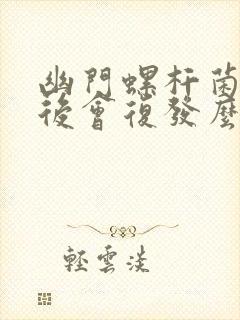 幽門螺杆菌
後會復發麼
輕雲淡